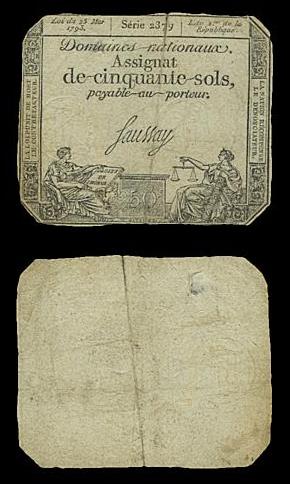 Loi du 23 Mai
1793.
Série 2379
L'an 2me. de la
République.
Domaines nationaux.
Assignat
de-cinquante-sols,
payable-au-porteur.
Saussay
LA LOI PUNIT DE MORT
LE CONTREFACTEUR.
LA NATION RÉCOMPENSE
LE DÉNONCIATEUR.
DROITS
DE
L'HOMME
50